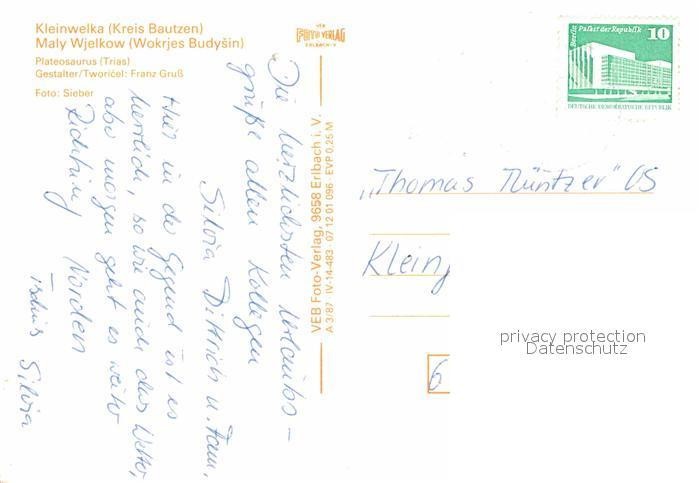 Kleinwelka (Kreis Bautzen)
Mały Wjelkow (Wokrjes Budyšin)
Plateosaurus (Trias)
Gestalter/Tworićel: Franz Gruß
Foto: Sieber
VEB
FOTO VERLAG
ERLBACH·V
VEB Foto-Verlag, 9658 Erlbach i. V.
A 3/87 IV-14-483 · 07 12 01 096 · EVP 0,25 M
Die herzlichsten Urlaubs-
grüße allen Kollegen
Silvia Dittrich u. Fam.
Hier in der Gegend ist es
herrlich, so wie auch das Wetter,
aber morgen geht es weiter
Richtung Norden
Tschüs Silvia
Berlin
Palast der Republik
10
DEUTSCHE DEMOKRATISCHE REPUBLIK
„Thomas Müntzer" OS
Klein
6
privacy protection
Datenschutz